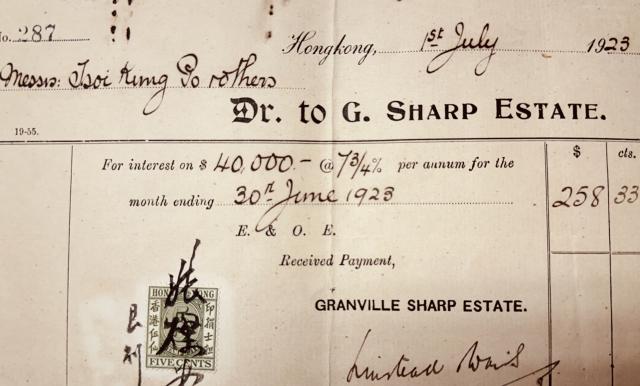 No. 287
Hongkong, 1st July 1923
Messrs: Tsoi Kung Po & others
Dr. to G. SHARP ESTATE.
19-55.
$ cts.
For interest on $ 40,000.- @ 7 3/4% per annum for the
month ending 30th June 1923 258 33
E. & O. E.
Received Payment,
GRANVILLE SHARP ESTATE.
HONG KONG
香港
印捐士
FIVE CENTS